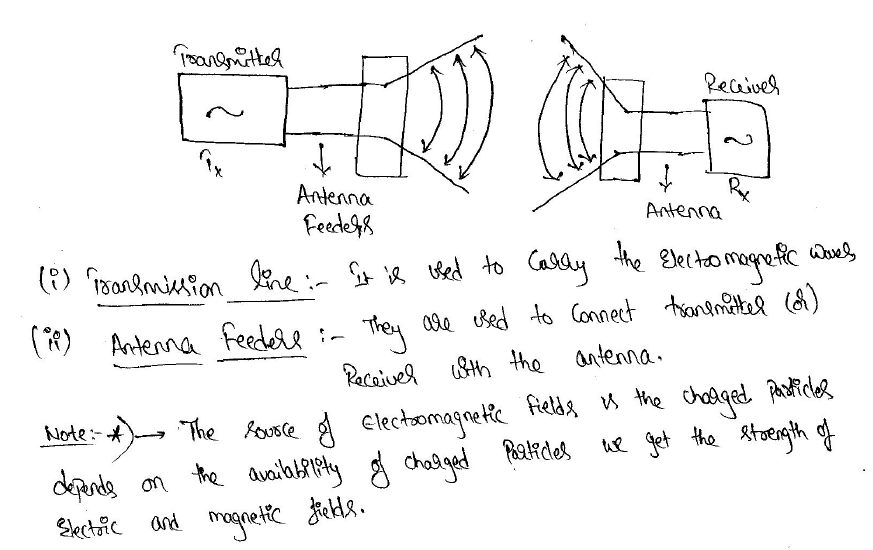 Transmitter
Receiver
~
~
Tx
Rx
Antenna
Feeders
Antenna
(i) Transmission line :- It is used to Carry the Electromagnetic waves
(ii) Antenna Feeders :- They are used to Connect transmitter (or)
Receiver with the antenna.
Note:- *) → The source of Electromagnetic fields is the charged particles
depends on the availability of charged particles we get the strength of
Electric and magnetic fields.